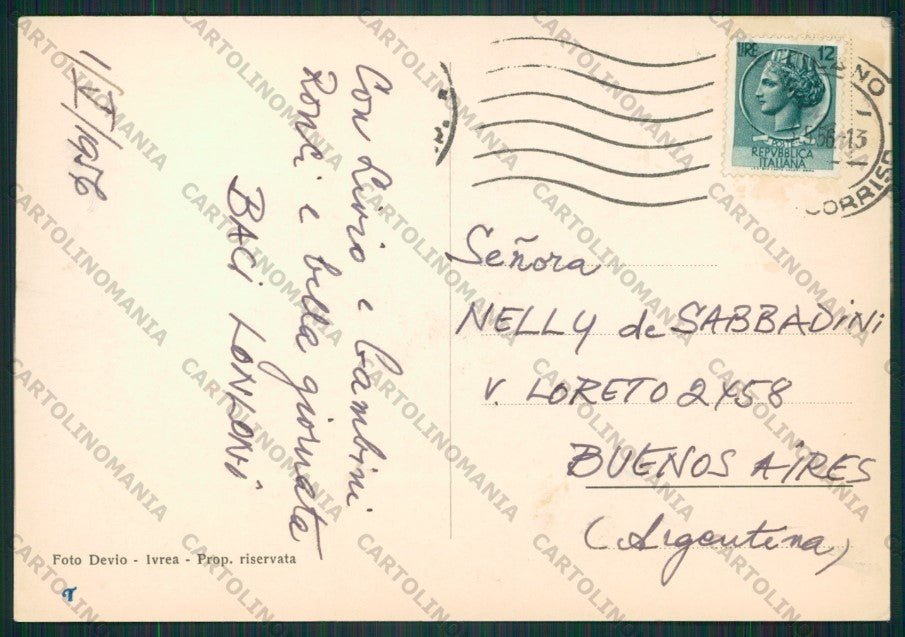 1/V/1956
Con Livio e bambini
e bella giornata
BACI
LIRE 12
POSTE
REPVBBLICA
ITALIANA
5.56-13
CORRISP
Señora
NELLY de SABBADiNi
V. LORETO 2458
BUENOS AiRES
(Argentina)
Foto Devio - Ivrea - Prop. riservata
T
CARTOLINOMANIA